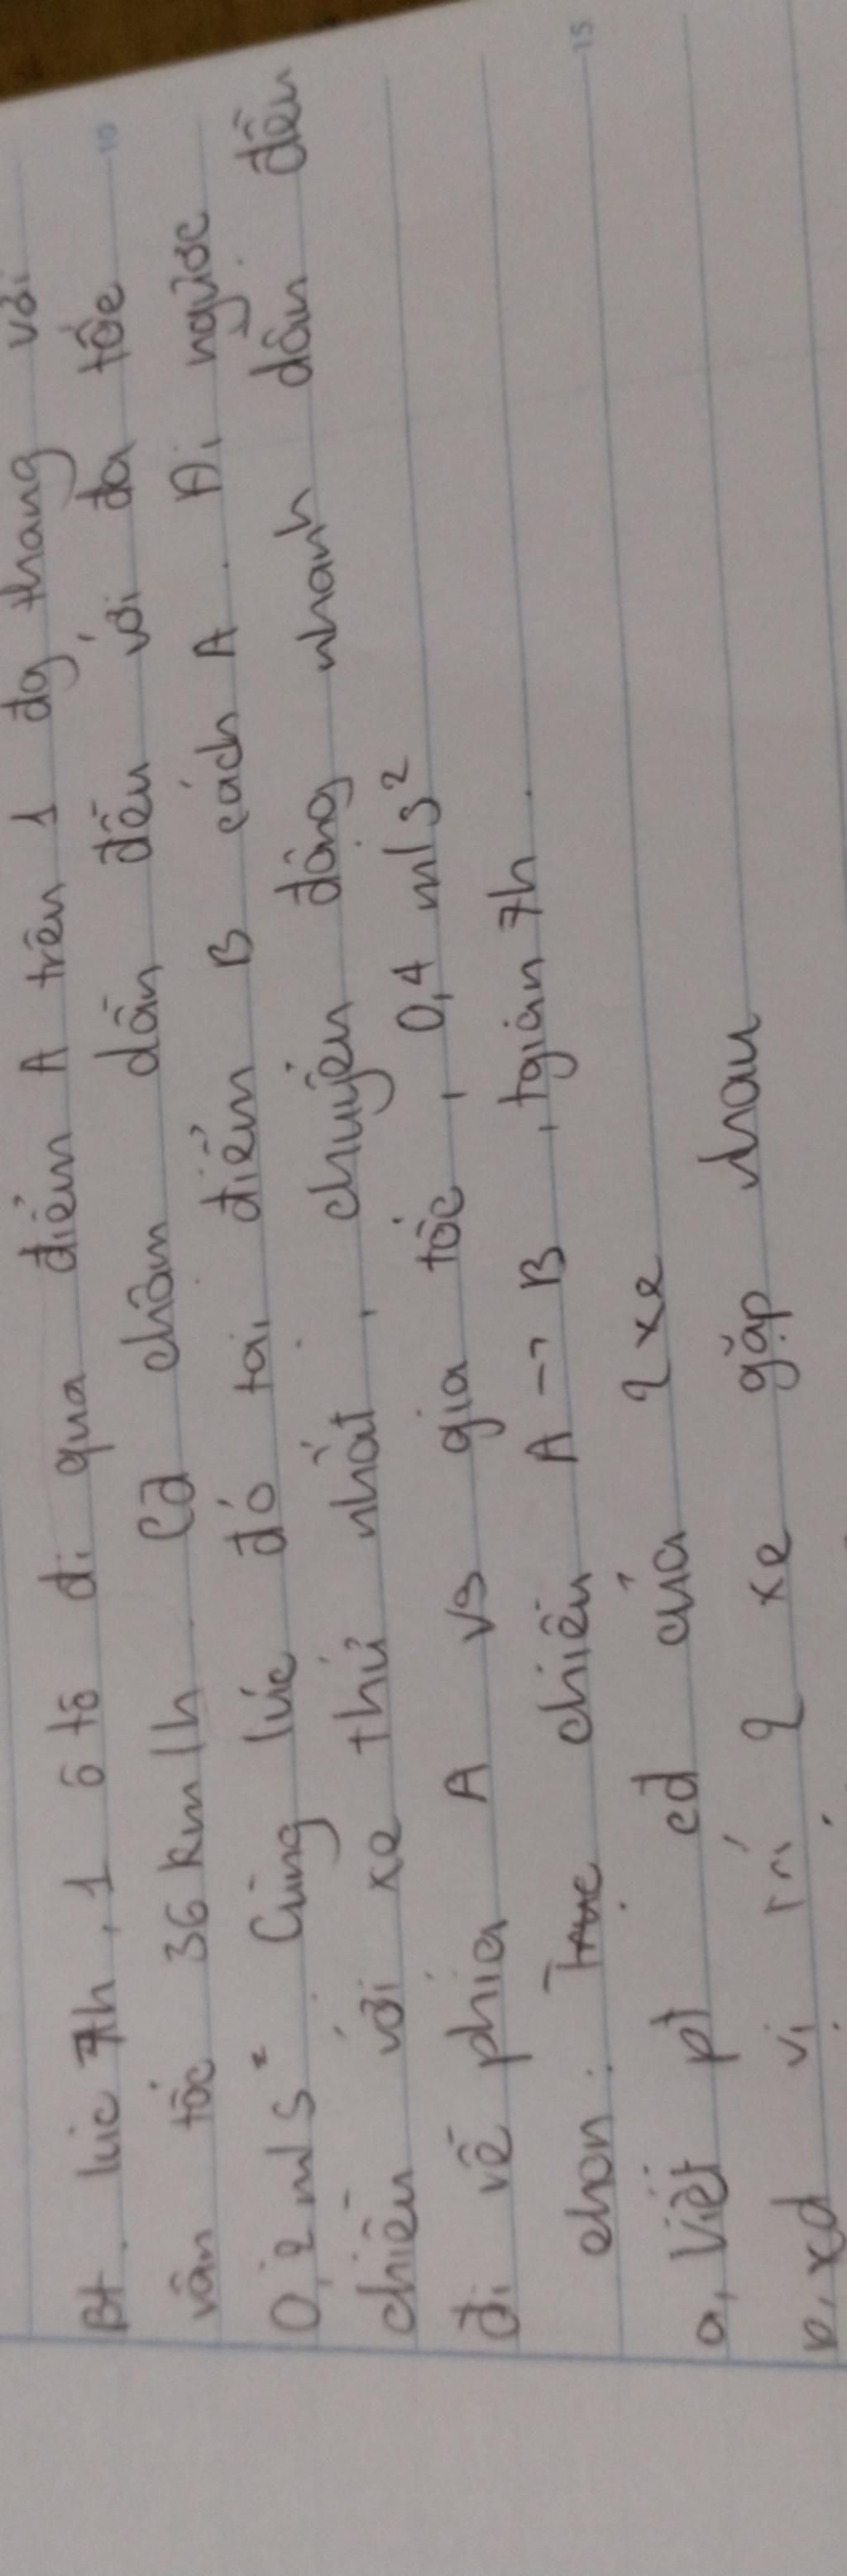 Bt. lúc 7h, 1 ô tô đi qua điểm A trên 1 đg thẳng với
vận tốc 36 km/h. Cđ chậm dần đều với da tốc
0,2 m/s² Cùng lúc đó tại điểm B cách A. Đi ngược
chiều với xe thứ nhất, chuyển động nhanh dần đều
đi về phía A vs gia tốc, 0,4 m/s²
chọn: Trục chiều A → B, tgian 7h.
a, Viết pt cđ của 2 xe
b, xđ vị trí 2 xe gặp nhau
10
15